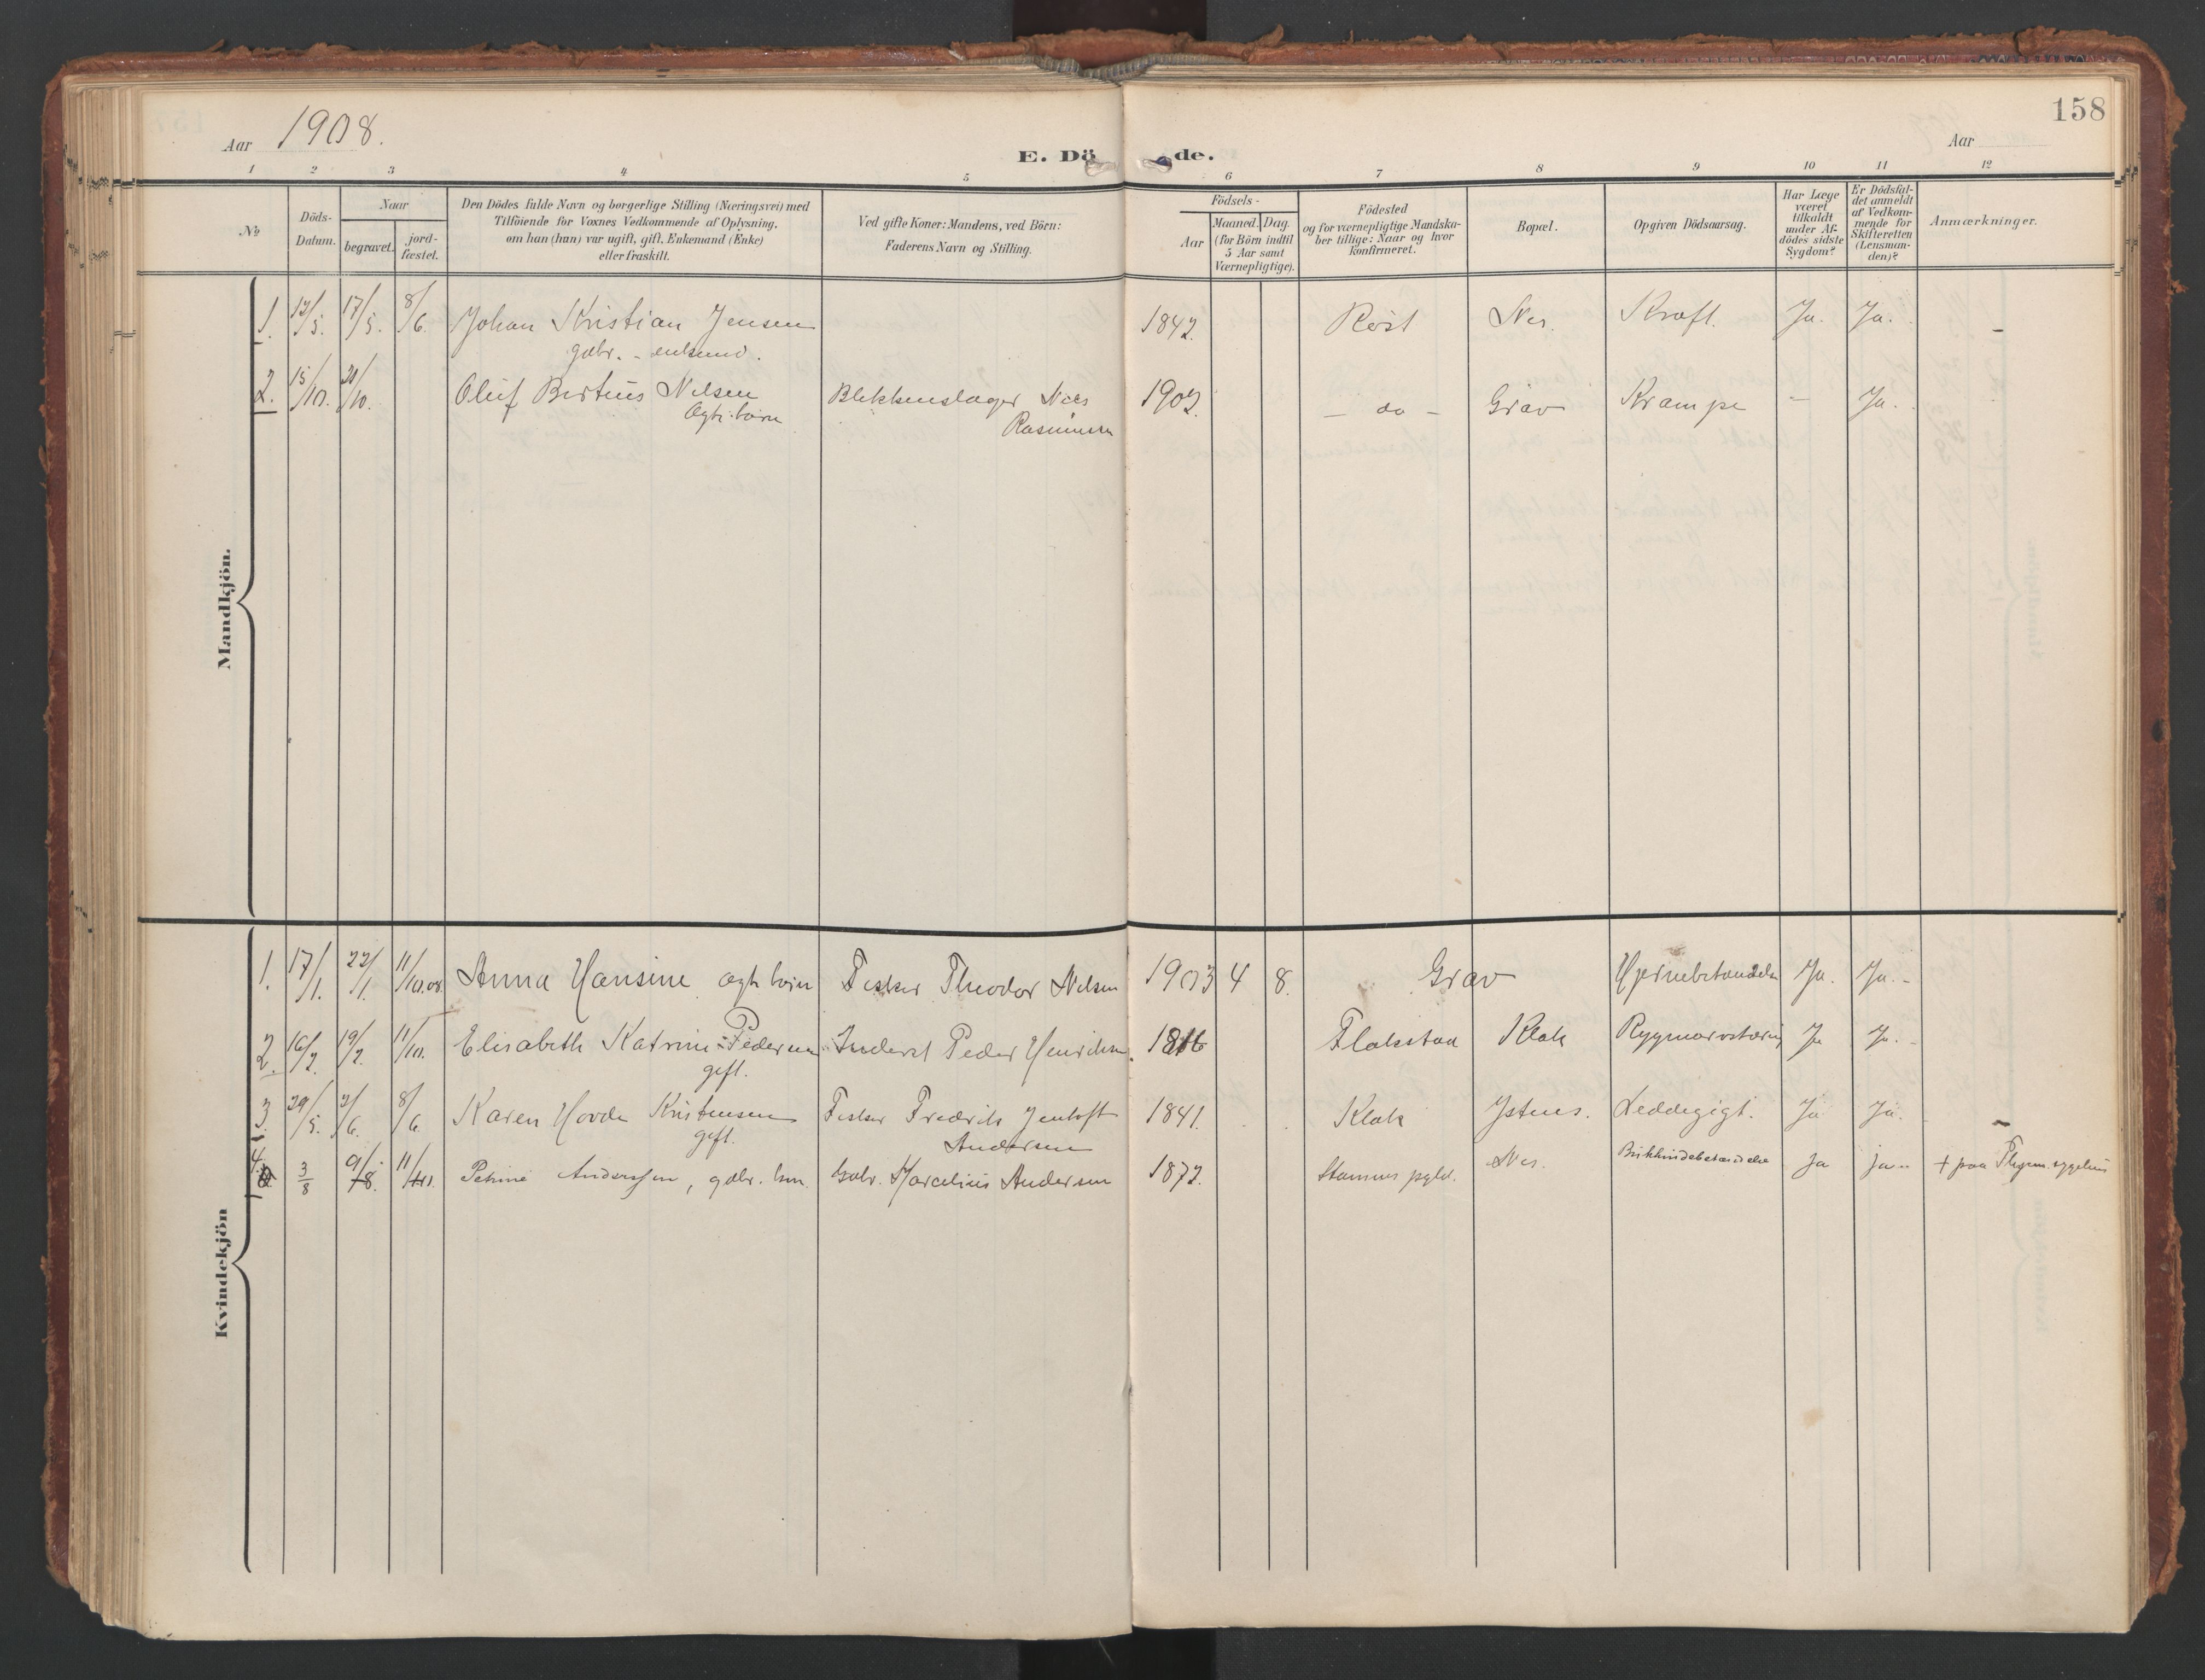 158
Aar 1908.
E. Dö de.
Aar
1 2 3 4 5 6 7 8 9 10 11 12
№
Döds-
Datum.
Naar
begravet.
jord-
fæstet.
Den Dödes fulde Navn og borgerlige Stilling (Næringsvei) med
Tilföiende for Voxnes Vedkommende af Oplysning,
om han (hun) var ugift, gift, Enkemand (Enke)
eller fraskilt.
Ved gifte Koner: Mandens, ved Börn:
Faderens Navn og Stilling.
Födsels-
Aar
Maaned. Dag.
(for Börn indtil
5 Aar samt
Værnepligtige).
Födested
og for værnepligtige Mandska-
ber tillige: Naar og hvor
konfirmeret.
Bopæl.
Opgiven Dödsaarsag.
Har Læge
været
tilkaldt
under Af-
dödes sidste
Sygdom?
Er Dödsfal-
det anmeldt
af Vedkom-
mende for
Skifteretten
(Lensman-
den)?
Anmærkninger.
Mandkjön.
1. 12/5. 17/5. 8/6. Johan Kristian Jensen 1842. Røst Nes. Kræft. Ja. Ja. –
gdbr. - enkemd.
2. 15/10. 20/10. Oluf Bertius Nilsen Blikkenslager Nils 1902. – do – Grav Krampe – Ja.
Ægte barn Rasmussen
Kvindekjön
1. 17/1. 22/1. 11/10.08. Anna Hansine ægte barn Fisker Theodor Nilsen 1903 4 8. Grav Hjernebetændelse Ja. Ja. -
2. 16/2. 19/2. 11/10. Elisabeth Katrine Pedersen Inderst Peder Henriksen. 1816 Flakstad Klak Rygmarvstæring Ja Ja. -
gift.
3. 29/5. 2/6. 8/6. Karen Hovda Kristensen Fisker Fredrik Jentoft 1841. Klak Ystnes. Leddegigt. Ja Ja. –
gift. Andersen
4. 3/8 9/8. 11/10. Petrine Anderssen, gdbr. kn. Gdbr. Marcelius Andersen 1872. Stamnes pgld. Nes. Brikhindebetændelse ja ja.. + paa sygehus